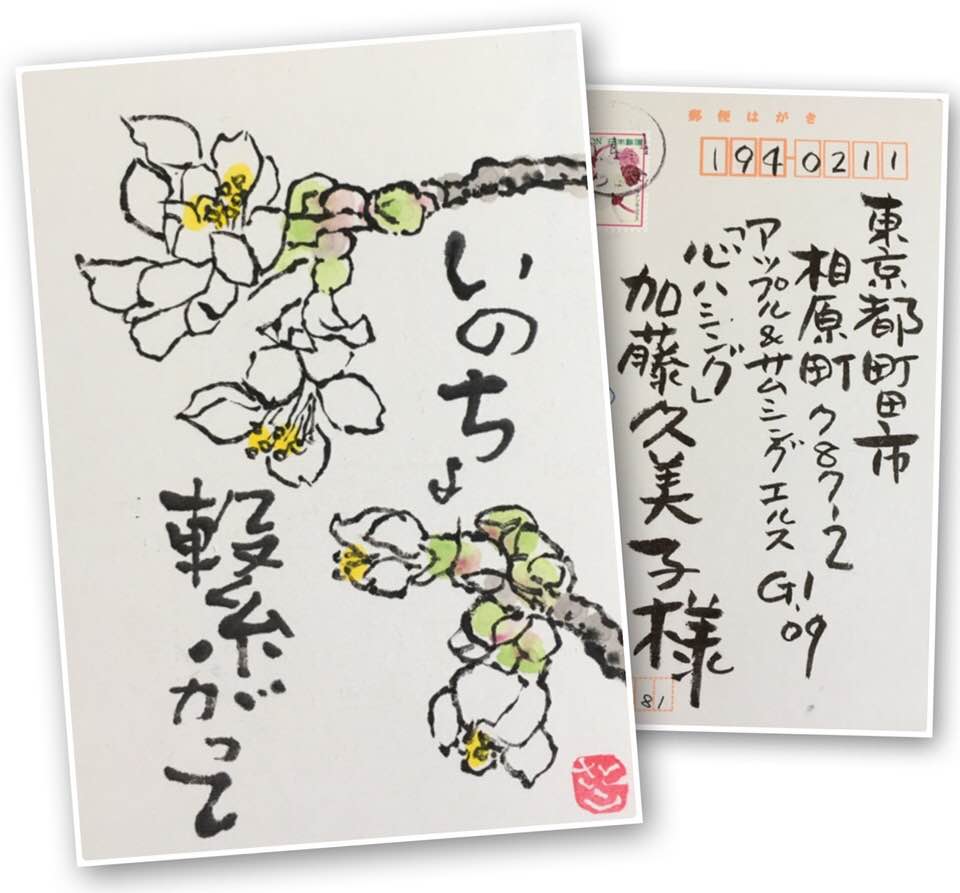 いのちよ
繋がって
郵便はがき
1940211
東京都町田市
相原町787-2
アップル&サムシングエルス G.1 09
「心ハミング」
加藤久美子様
81